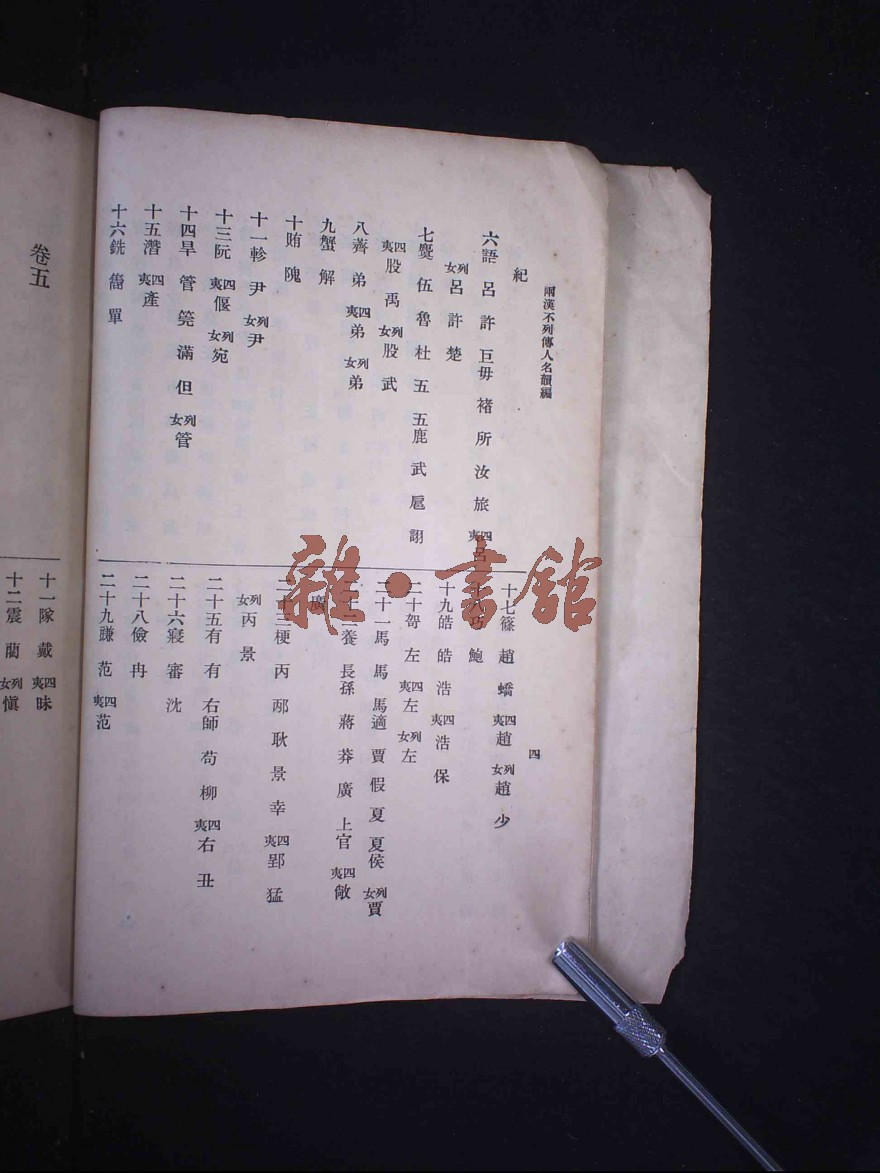 兩漢不列傳人名韻編
四
紀
六語 呂 許 巨毋 褚 所 汝 旅 四夷呂
列女呂 許 楚
七麌 伍 魯 杜 五 五鹿 武 扈 詡
四夷股 禹 列女股 武
八薺 弟 四夷弟 列女弟
九蟹 解
十賄 隗
十一軫 尹 列女尹
十三阮 四夷偃 列女宛
十四旱 管 筦 滿 但 列女管
十五潸 四夷產
十六銑 雋 單
十七篠 趙 蟜 四夷趙 列女趙 少
巧 鮑
十九皓 皓 浩 四夷浩 保
二十哿 左 四夷左 列女左
二十一馬 馬 馬適 賈 假 夏 夏侯 列女賈
二養 長孫 蔣 莽 廣 上官 四夷敞
廣
二十三梗 丙 邴 耿 景 幸 四夷郢 猛
列女丙 景
二十五有 有 右師 苟 柳 四夷右 丑
二十六寢 審 沈
二十八儉 冉
二十九豏 范 四夷范
卷五
十一隊 戴 四夷昧
十二震 藺 列女慎
雜·書館